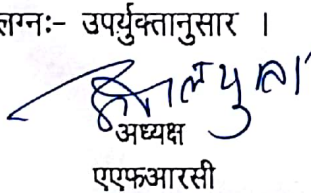 लग्नः- उपर्युक्तानुसार ।
अध्यक्ष
एएफआरसी